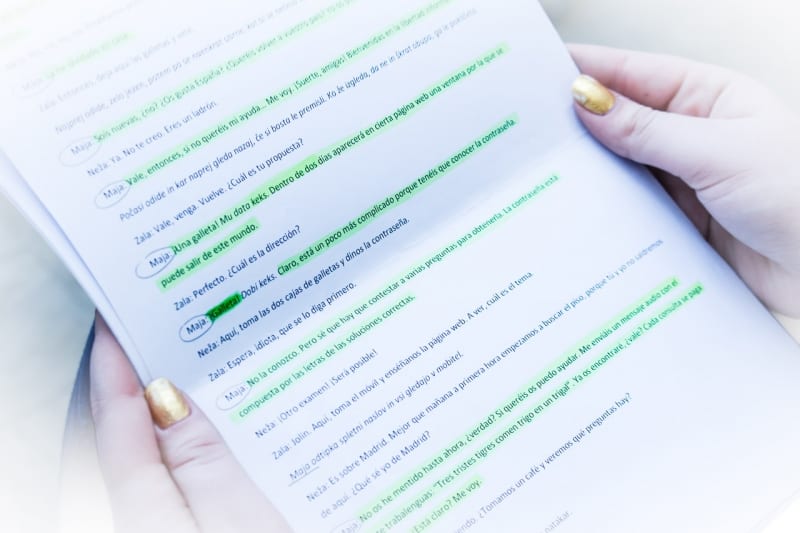 Maja: Ya he olvidado el cine.
Zala: Entonces, deja aquí las galletas y vete.
Noprej odide, zelo jezen, potem po se naenkrat
Maja: Sois nuevas, ¿no? ¿Os gusta España? ¿Queréis volver a vuestro país?
Neža: Ya. No te creo. Eres un ladrón.
Maja: Vale, entonces, si no queréis mi ayuda... Me voy. ¡Suerte, amigas! Bienvenidas en la libertad
Počasi odide in kar naprej gleda nazaj, če si bosta le premisli. Ko že izgleda, da ne in skrat obupa, ga le pokličeta
Zala: Vale, venga. Vuelve. ¿Cuál es tu propuesta?
Maja: ¡Una galleta! Mu data keks. Dentro de dos días aparecerá en cierta página web una ventana por la que se
puede salir de este mundo.
Zala: Perfecto. ¿Cuál es la dirección?
Maja: ¡Galleta! Dobi keks. Claro, está un poco más complicado porque tenéis que conocer la contraseña.
Neža: Aquí, toma las dos cajas de galletas y dinos la contraseña.
Zala: Espera, idiota, que se lo diga primero.
Maja: No la conozco. Pero sé que hay que contestar a varias preguntas para obtenerla. La contraseña está
compuesta por las letras de las soluciones correctas.
Neža: ¡Otro examen! ¡Será posible!
Zala: Jolin. Aquí, toma el móvil y enséñanos la página web. A ver, cuál es el tema.
Maja odtipka spletni naslov in vsi gledajo v mobitel.
Neža: Es sobre Madrid. Mejor que mañana a primera hora empezamos a buscar el piso, porque tú y yo no saldremos
de aquí. ¿Qué sé yo de Madrid?
Maja: No os he mentido hasta ahora, ¿verdad? Si queréis os puedo ayudar. Me enviáis un mensaje audio con el
se trabalenguas: "Tres tristes tigres comen trigo en un trigal". Ya os encontraré, ¿vale? Cada consulta se paga
¿Está claro? Me voy.
¿Tomamos un café y veremos qué preguntas hay?
natakar.